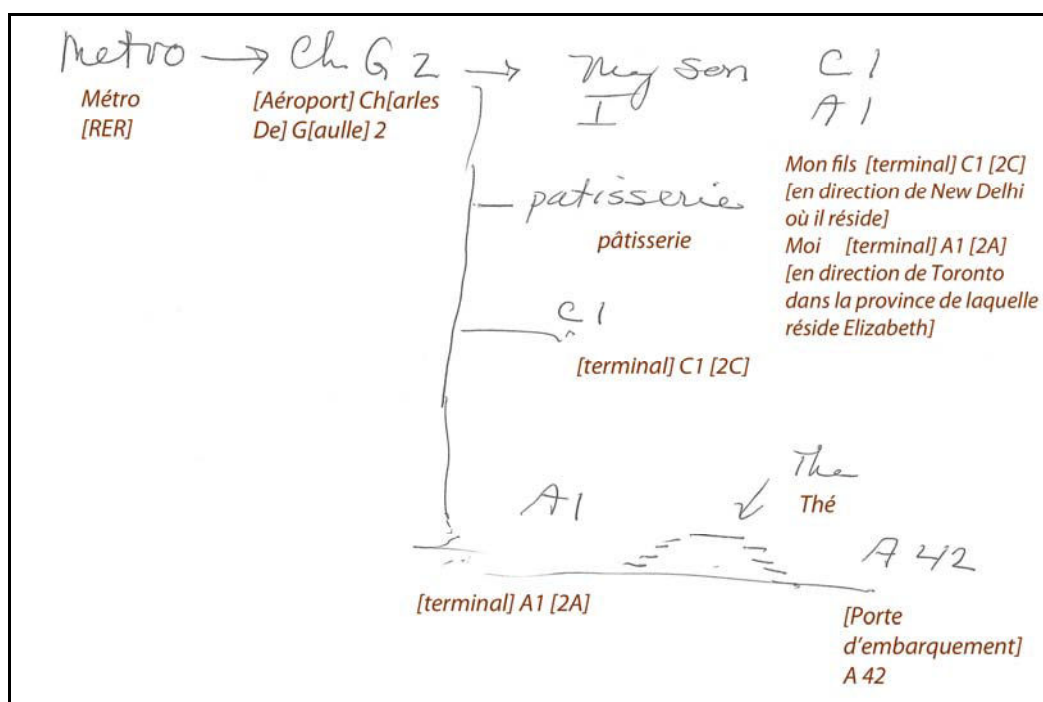 Metro → Ch G 2 → My Son C1
I A1
Métro
[RER]
[Aéroport] Ch[arles
De] G[aulle] 2
Mon fils [terminal] C1 [2C]
[en direction de New Delhi
où il réside]
Moi [terminal] A1 [2A]
[en direction de Toronto
dans la province de laquelle
réside Elizabeth]
patisserie
pâtisserie
C1
[terminal] C1 [2C]
The
Thé
A1
A 42
[terminal] A1 [2A]
[Porte
d'embarquement]
A 42